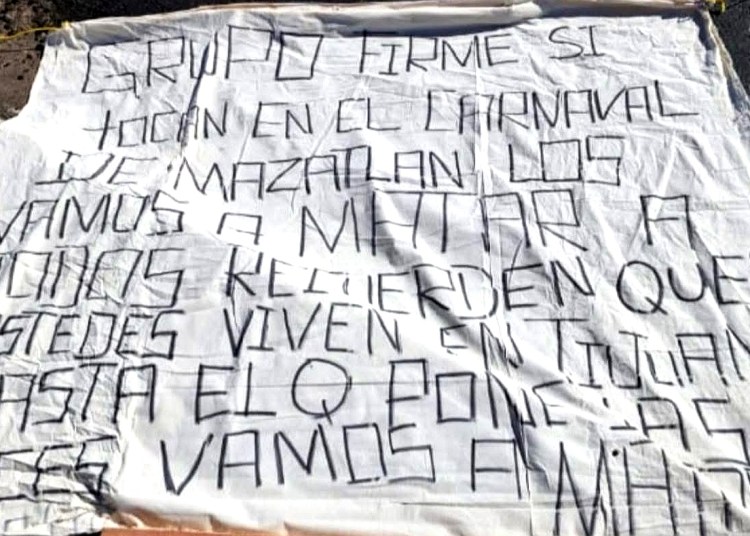 GRUPO FIRME SI
tOCAN EN EL CARNAVAL
DE MAZATLAN LOS
VAMOS A MATAR A
TODOS RECUERDEN QUE
STEDES VIVEN EN TIJUAN
ASTA EL Q PONE LAS
CES VAMOS A MATA